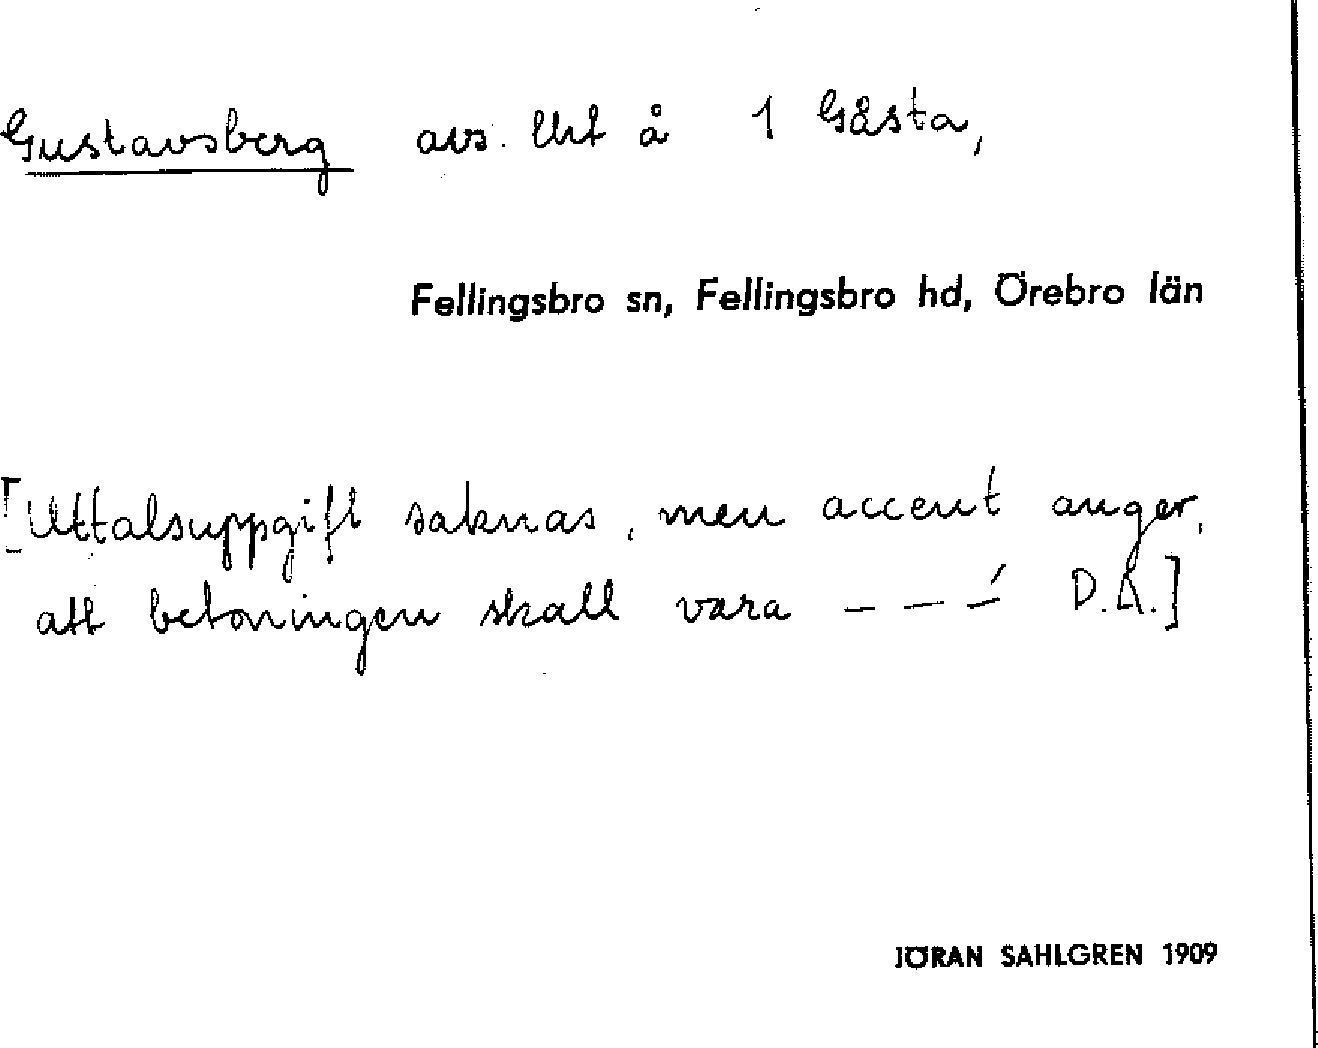 Gustavsberg avs. lht å 1 Gästa,
Fellingsbro sn, Fellingsbro hd, Örebro län
[Uttalsuppgift saknas, men accent anger,
att betoningen skall vara – – –́ D.A.]
JÖRAN SAHLGREN 1909